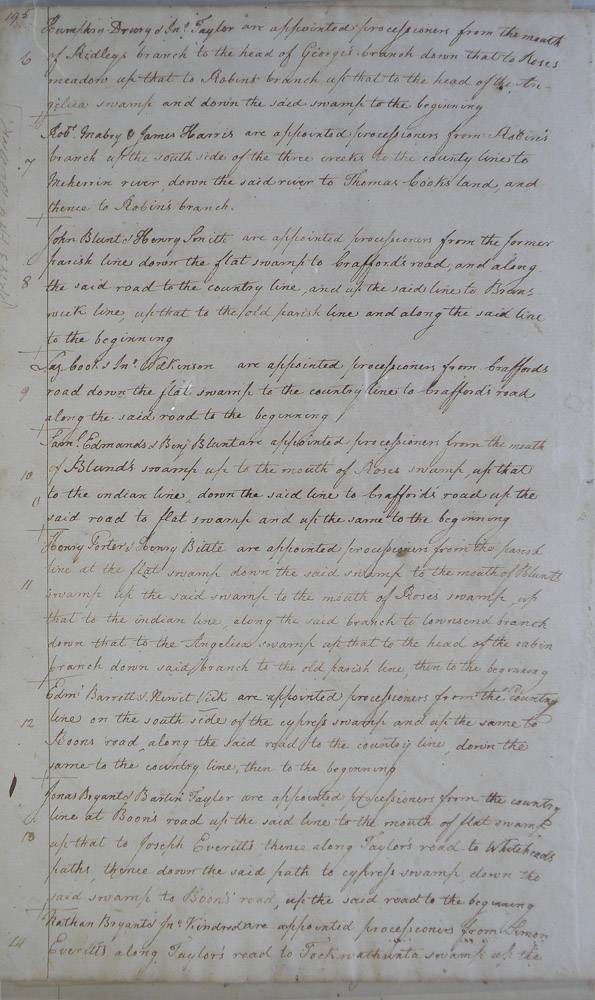 195
Humphry Drury & Jno. Taylor are appointed processioners from the mouth
6 of Ridleys branch to the head of Georges branch down that to Roses
meadow up that to Robins branch up that to the head of the An-
gelica swamp and down the said swamp to the beginning
Robt. Mabry & James Harris are appointed processioners from Robin's
7 branch up the south side of the three creeks to the county line to
Meherrin river, down the said river to Thomas Cooks land, and
thence to Robin's branch.
John Blunt & Henry Smith are appointed processioners from the former
parish line down the flat swamp to Crafford's road, and along
8 the said road to the country line, and up the said line to Bruns
wick line, up that to the old parish line and along the said line
to the beginning
Cook & Jno. Wilkinson are appointed processioners from Craffords
9 road down the flat swamp to the country line to Crafford's road
along the said road to the beginning
Saml. Edmunds & Benj Blunt are appointed processioners from the mouth
10 of Blund's swamp up to the mouth of Roses swamp, up that
to the indian line, down the said line to Crafford's road up the
said road to flat swamp and up the same to the beginning
Henry Porter & Henry Bittle are appointed processioners from the parish
11 line at the flat swamp down the said swamp to the mouth of Blunts
swamp up the said swamp to the mouth of Rose's swamp, up
that to the indian line, along the said branch to Townsend branch
down that to the Angelica swamp up that to the head of the cabin
branch down said branch to the old parish line, then to the beginning
Edmd. Barrott & Newit Vick are appointed processioners from the country
12 line on the south side of the cypress swamp and up the same to
Boons road, along the said road to the country line, down the
same to the country line, then to the beginning
Jonas Bryant & Bartin Taylor are appointed processioners from the country
13 line at Boon's road up the said line to the mouth of flat swamp
up that to Joseph Everitts thence along Taylor's road to Whiteheads
paths, thence down the said path to cypress swamp, down the
said swamp to Boon's road, up the said road to the beginning
Nathan Bryant & Jno. Kindred are appointed processioners from Simon
14 Everitts along Taylor's road to Tockwathunta swamp up the